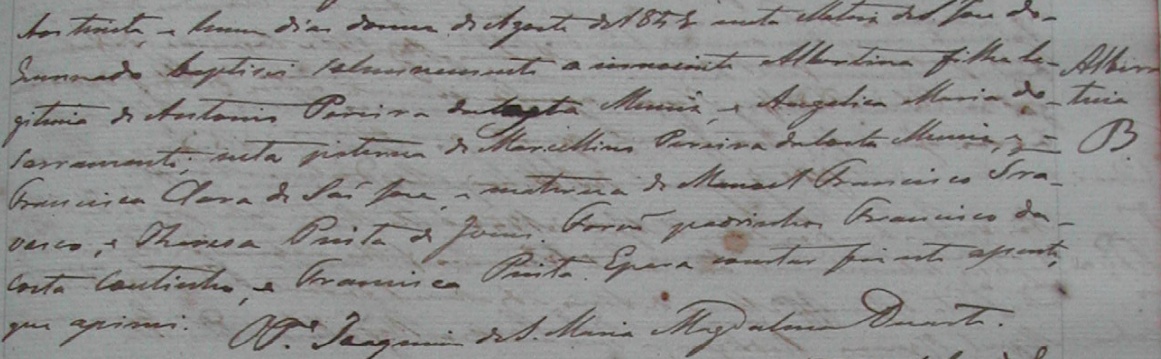 Aos trinta, e hum dias do mez de Agosto de 185 nesta Matriz de S. Jose do-
baptisei solemnemente a innocente Albertina filha le-
gitima de Antonio Pereira da Costa Muniz, e Angelica Maria do-
Sacramento; neta paterna de Marcellino Pereira da Costa Muniz, e -
Francisca Clara de São Jose, e materna de Manoel Francisco Tra-
vasco, e Theresa Pinta de Jesus. Forão padrinhos Francisco da-
Costa Coutinho, e Francisca Pinta. E para constar fiz este assento,
que assinei. O V.º Joaquim de S. Maria Magdalena Duarte.
Alber
tina
B.